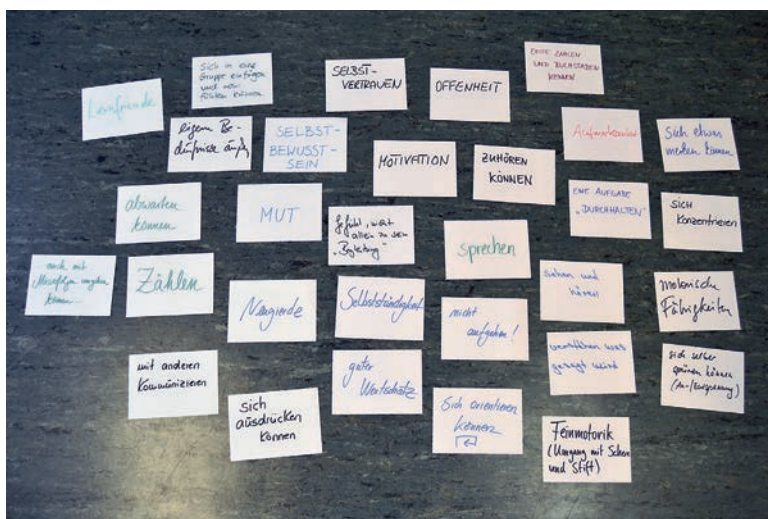 Lernfreude
Sich in eine
Gruppe einfügen
und wohl
fühlen können
SELBST-
VERTRAUEN
OFFENHEIT
ERSTE ZAHLEN
UND BUCHSTABEN
KENNEN
eigene Be-
dürfnisse
SELBST-
BEWUSST-
SEIN
MOTIVATION
ZUHÖREN
KÖNNEN
Aufmerksamkeit
Sich etwas
merken können
abwarten
können
MUT
Gefühl, nicht
allein zu sein
"Begleitung"
sprechen
EINE AUFGABE
"DURCHHALTEN"
SICH
Konzentrieren
auch mit
umgehen
können
Zählen
Neugierde
Selbstständigkeit
nicht
aufgeben!
sehen und
hören
motorische
Fähigkeiten
mit anderen
Kommunizieren
sich
ausdrücken
können
guter
Wortschatz
Sich orientieren
können
verstehen was
gesagt wird
sich selber
spüren können
Feinmotorik
(Umgang mit Schere
und Stift)